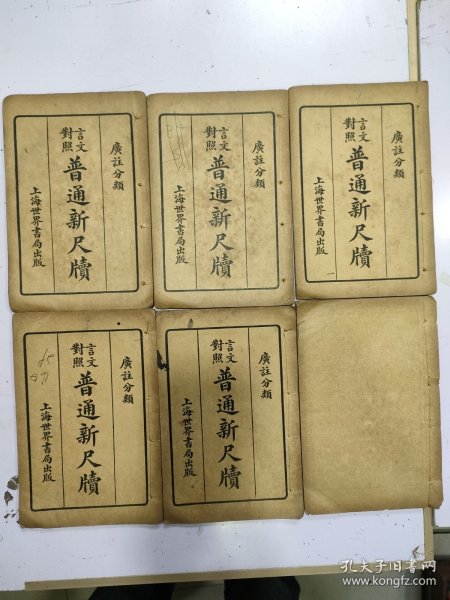 廣註分類
言文對照
普通新尺牘
上海世界書局出版
廣註分類
言文對照
普通新尺牘
上海世界書局出版
廣註分類
言文對照
普通新尺牘
上海世界書局出版
廣註分類
言文對照
普通新尺牘
上海世界書局出版
廣註分類
言文對照
普通新尺牘
上海世界書局出版
孔夫子旧书网
www.kongfz.com